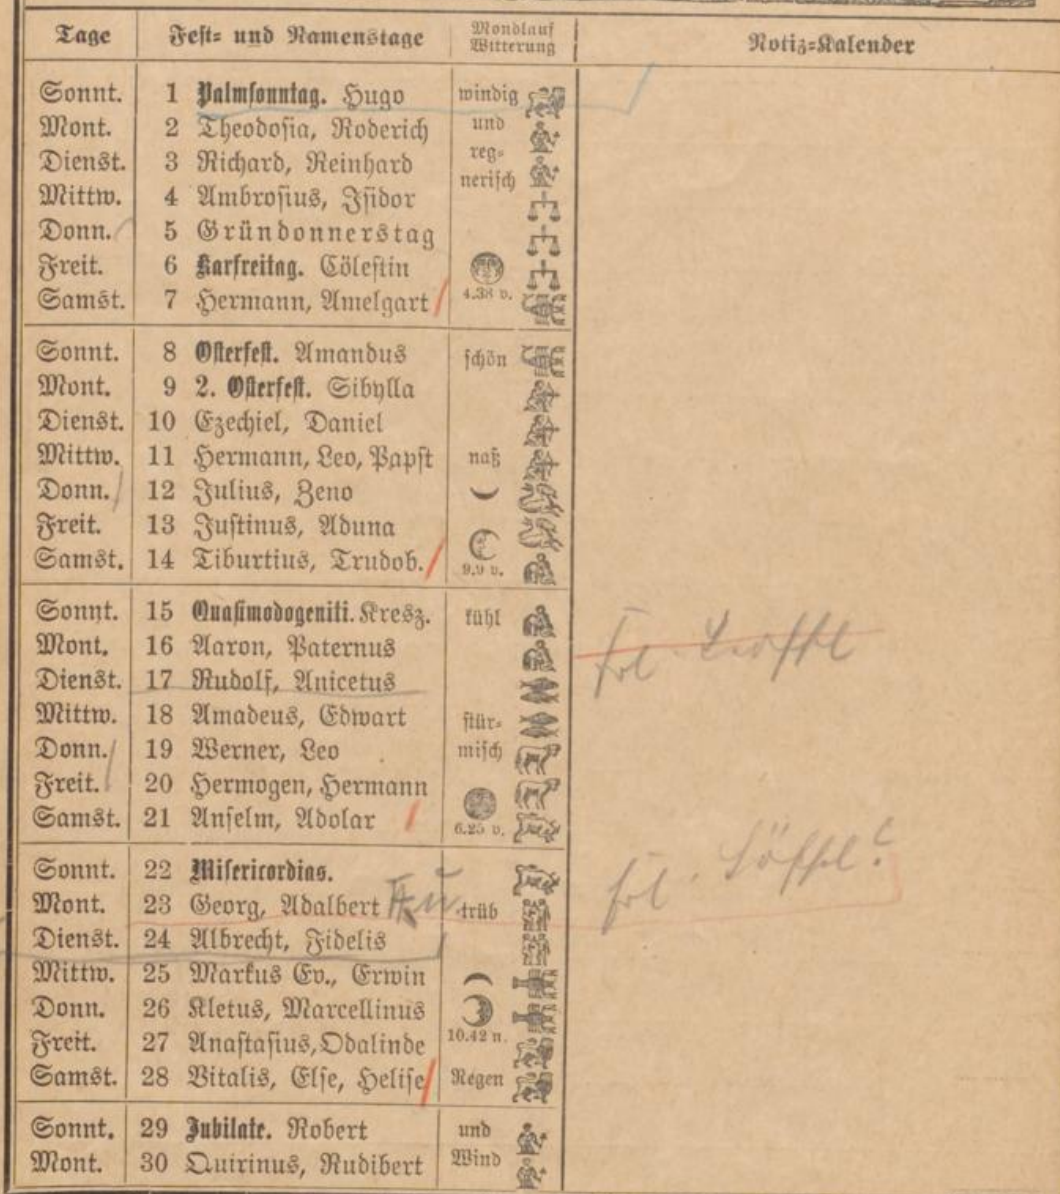 Tage Fest- und Namenstage Mondlauf Witterung Notiz-Kalender
Sonnt. 1 Palmsonntag. Hugo windig
Mont. 2 Theodosia, Roderich und
Dienst. 3 Richard, Reinhard reg-
Mittw. 4 Ambrosius, Isidor nerisch
Donn. 5 Gründonnerstag
Freit. 6 Karfreitag. Cölestin
Samst. 7 Hermann, Amelgart 4.38 v.
Sonnt. 8 Osterfest. Amandus schön
Mont. 9 2. Osterfest. Sibylla
Dienst. 10 Ezechiel, Daniel
Mittw. 11 Hermann, Leo, Papst naß
Donn. 12 Julius, Zeno
Freit. 13 Justinus, Aduna
Samst. 14 Tiburtius, Trudob. 9.9 v.
Sonnt. 15 Quasimodogeniti. Kresz. kühl
Mont. 16 Aaron, Paternus Frl.
Dienst. 17 Rudolf, Anicetus
Mittw. 18 Amadeus, Edwart stür-
Donn. 19 Werner, Leo misch
Freit. 20 Hermogen, Hermann
Samst. 21 Anselm, Adolar 6.25 v.
Sonnt. 22 Misericordias.
Mont. 23 Georg, Adalbert trüb Frl. Löffel?
Dienst. 24 Albrecht, Fidelis
Mittw. 25 Markus Ev., Erwin
Donn. 26 Kletus, Marcellinus
Freit. 27 Anastasius, Odalinde 10.42 n.
Samst. 28 Vitalis, Else, Helise Regen
Sonnt. 29 Jubilate. Robert und
Mont. 30 Quirinus, Rudibert Wind